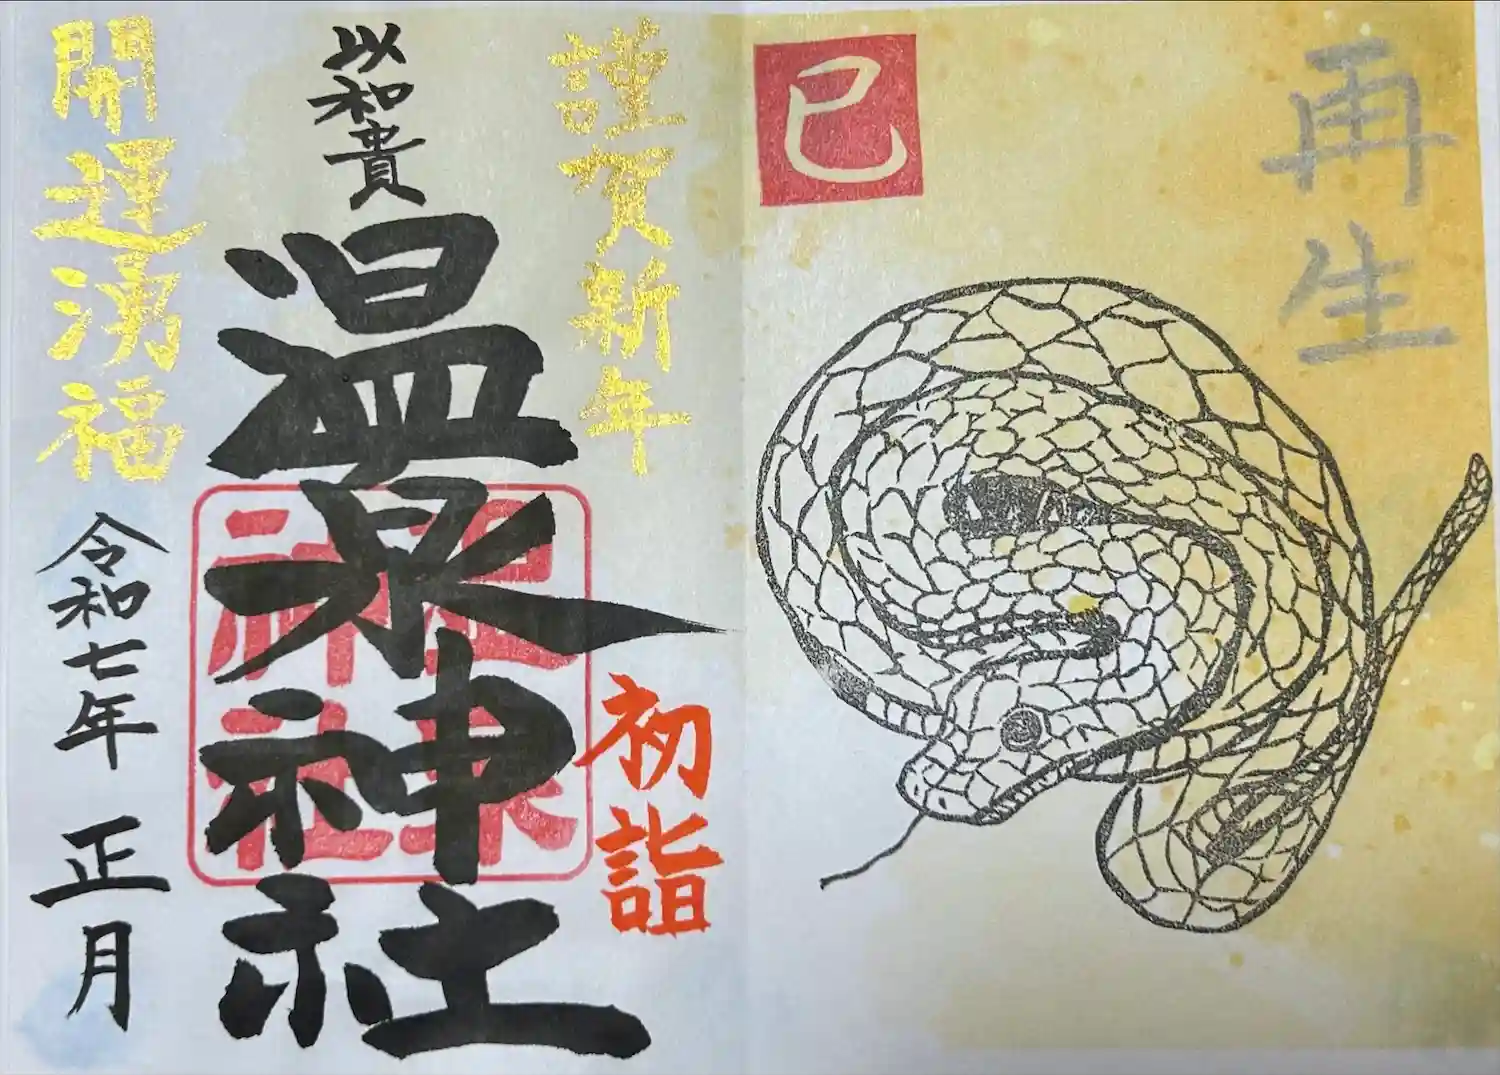 再生
巳
謹賀新年
初詣
以和貴
温泉神社
温泉
神社
開運湧福
令和七年 正月